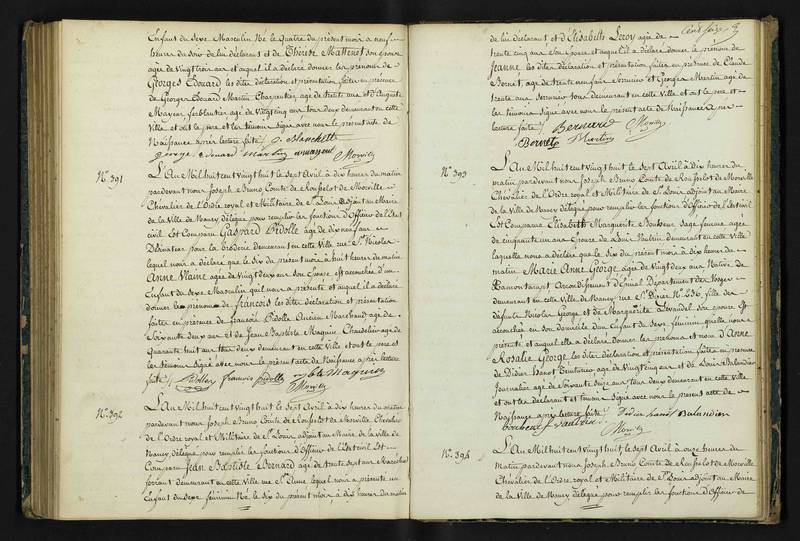 Enfant du Sexe Masculin Né le Quatre du présent mois à neuf
heures du Soir de lui déclarant et de Thérèse Mattenet Son Epouse
agée de Vingt trois ans et auquel il a déclaré donner les prénoms de
Georges Edouard les dites déclaration et présentation faites en présence
de Georges Edouard Martin Charpentier agé de trente ans et d'Auguste
Mayeur ferblantier agé de Vingt cinq ans tous deux demeurant en cette
Ville et ont le père et les témoins Signé avec nous le présent acte de
Naissance après lecture faite
Morville
N.° 391
L'An Mil huit cent Vingt huit le Sept Avril à dix heures du matin
pardevant nous Joseph Bruno Comte de Rousselot de Morville
Chevalier de l'Ordre royal et Militaire de S.t Louis adjoint au Maire
de la Ville de Nancy délégué pour remplir les fonctions d'Officier de l'Etat
civil Est Comparu Gaspard Pidolle agé de dix neuf ans
Déssinateur pour la broderie demeurant en cette Ville rue S.t Nicolas
lequel nous a déclaré que le Six du présent mois à huit heures du matin
Anne Maine agée de Vingt deux ans Son Epouse est accouchée d'un
Enfant du Sexe Masculin qu'il nous a présenté et auquel il a déclaré
donner le prénom de françois les dites déclaration et présentation
faites en présence de françois Pidolle Ancien Marchand agé de
Soixante deux ans et de Jean Baptiste Maguin Chaudelier agé de
Quarante huit ans tous deux demeurant en cette Ville et ont le père et
les témoins Signé avec nous le présent acte de Naissance après lecture
faite Pidolle françois pidolle Maguin
Morville
N.° 392
L'An Mil huit cent Vingt huit le Sept Avril à dix heures du matin
pardevant nous Joseph Bruno Comte de Rousselot de Morville Chevalier
de l'Ordre royal et Militaire de S.t Louis adjoint au Maire de la ville de
Nancy délégué pour remplir les fonctions d'Officier de l'Etat civil Est
Comparu Jean Baptiste Bernard agé de trente sept ans Maréchal
ferrant demeurant en cette Ville rue S.te Anne lequel nous a présenté un
Enfant du Sexe féminin Né le Six du présent mois à dix heures du matin
Cent seize
de lui déclarant et d'Elisabeth Leroy agée de
trente cinq ans Son Epouse et auquel il a déclaré donner le prénom de
Jeanne les dites déclaration et présentation faites en présence de Claude
Bornet, agé de trente neuf ans Serrurier et Georges Martin agé de
trente ans Serrurier tous demeurant en cette Ville et ont le père et
les témoins Signé avec nous le présent acte de Naissance après
lecture faite Bernard Morville
Bornet Martin
N.° 393
L'An Mil huit cent Vingt huit le Sept Avril à dix heures du
matin pardevant nous Joseph Bruno Comte de Rousselot de Morville
Chevalier de l'Ordre royal et Militaire de S.t Louis adjoint au Maire
de la Ville de Nancy délégué pour remplir les fonctions d'Officier de l'Etat civil
Est Comparu Elisabeth Marguerite Sage femme agée
de cinquante un ans Epouse de demeurant en cette Ville
laquelle nous a déclaré que le Six du présent mois à dix heures du
matin Marie Anne George agée de Vingt deux ans Native de
Ramonchamp Arrondissement d'Epinal Département des Vosges
demeurant en cette Ville de Nancy rue S.t Dizier N.° 336, fille des
défunts Nicolas George et de Marguerite Son épouse est
accouchée en Son domicile d'un Enfant du Sexe féminin qu'elle nous a
présenté et auquel elle a déclaré donner les prénoms et nom d'Anne
Rosalie George les dites déclaration et présentation faites en présence
de Didier agé de Vingt cinq ans et de Louis Balandier
Journalier agé de Soixante Seize ans tous deux demeurant en cette Ville
et ont les déclarante et témoins Signé avec nous le présent acte de
Naissance après lecture faite Didier Balandier
Morville
N.° 394
L'An Mil huit cent Vingt huit le Sept Avril à onze heures du
Matin pardevant nous Joseph Bruno Comte de Rousselot de Morville
Chevalier de l'Ordre royal et Militaire de S.t Louis adjoint au Maire
de la Ville de Nancy délégué pour remplir les fonctions d'Officier de